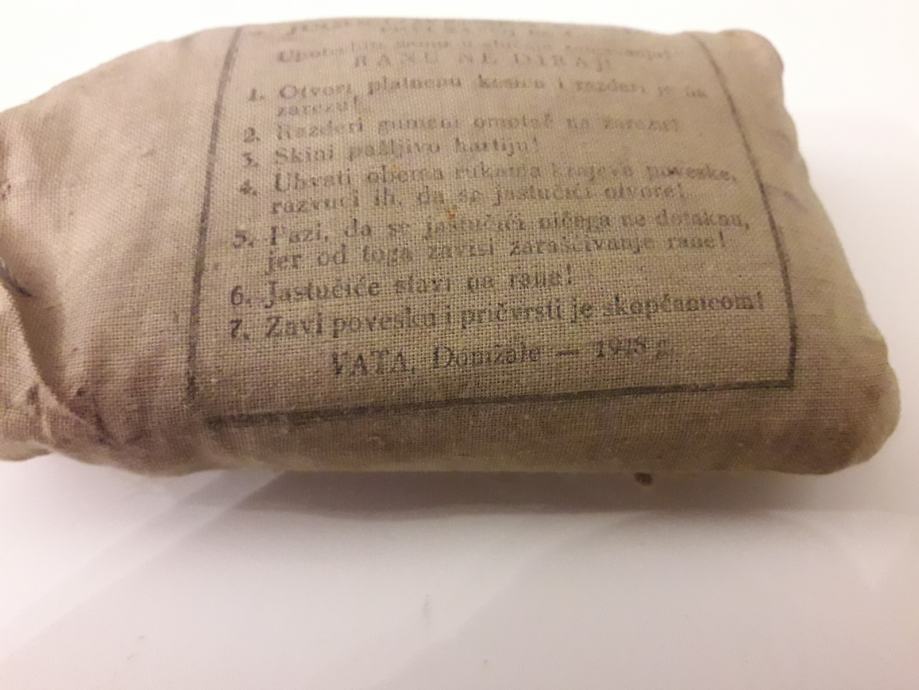 RANU NE DIRAJ!
1. Otvori platnenu kesicu i razderi je na
zarezu!
2. Razderi gumeni omotač na zarezu!
3. Skini pažljivo hartiju!
4. Uhvati obema rukama krajeve poveske,
razvuci ih, da se jastučići otvore!
5. Pazi, da se jastučići ničega ne dotaknu,
jer od toga zavisi zarašćivanje rane!
6. Jastučiće stavi na ranu!
7. Zavi povesku i pričvrsti je skopčanicom!
VATA, Domžale — 1948 g.